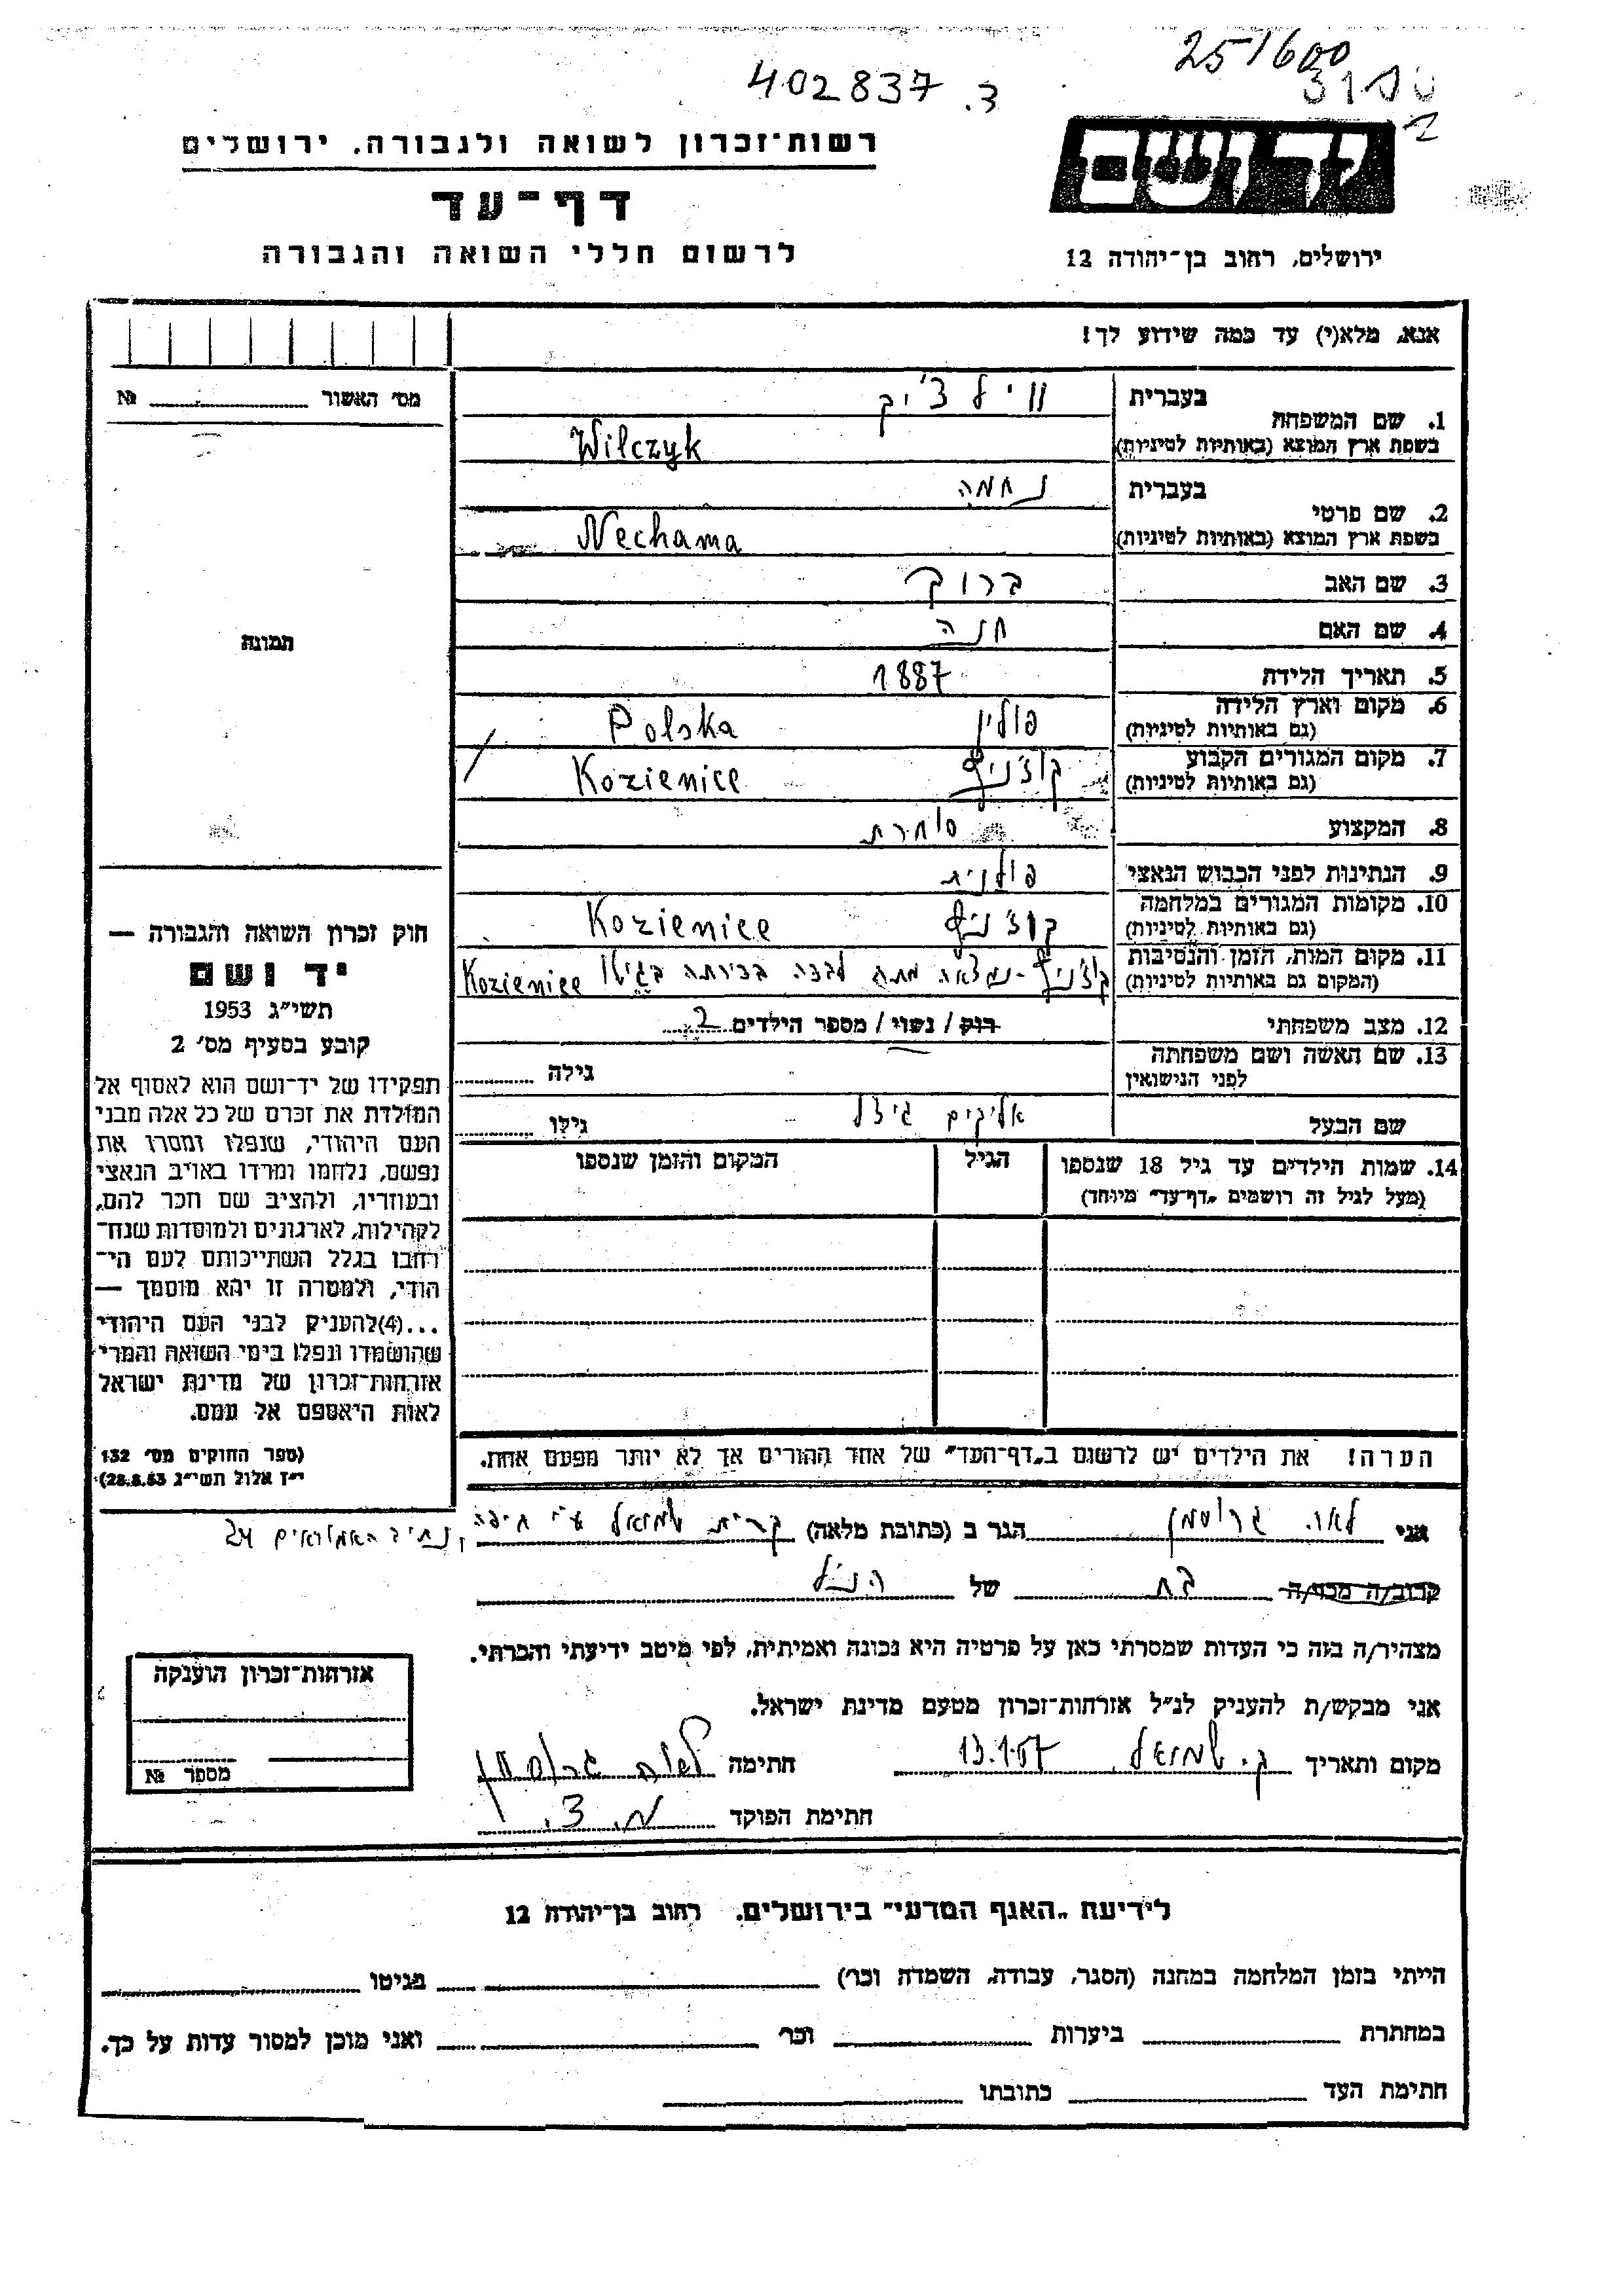 251600
402837 .3
רשות־זכרון לשואה ולגבורה, ירושלים
דף־עד
לרשום חללי השואה והגבורה
יד ושם
ירושלים, רחוב בן־יהודה 12
אנא, מלא(י) עד כמה שידוע לך!
מס׳ האשור № 
1. שם המשפחה
בעברית ווילצ׳יק
בשפת ארץ המוצא (באותיות לטיניות) Wilczyk
2. שם פרטי
בעברית נחמה
בשפת ארץ המוצא (באותיות לטיניות) Nechama
3. שם האב ברוך
4. שם האם חנה
תמונה
5. תאריך הלידה 1887
6. מקום וארץ הלידה פולין Polska
(גם באותיות לטיניות)
7. מקום המגורים הקבוע קוז׳ניץ Kozienice
(גם באותיות לטיניות)
8. המקצוע סוחרת
9. הנתינות לפני הכבוש הנאצי פולנית
10. מקומות המגורים במלחמה קוז׳ניץ Kozienice
(גם באותיות לטיניות)
11. מקום המות, הזמן והנסיבות קוז׳ניץ - נמצאה מתה לבדה בביתה בגיטו Kozienice
(המקום גם באותיות לטיניות)
12. מצב משפחתי רוק / נשוי / מספר הילדים 2
13. שם האשה ושם משפחתה
לפני הנישואין
גילה
שם הבעל אליקים גיצל גילו
14. שמות הילדים עד גיל 18 שנספו הגיל המקום והזמן שנספו
(מעל לגיל זה רושמים „דף־עד״ מיוחד)
הערה! את הילדים יש לרשום ב„דף־העד״ של אחד ההורים אך לא יותר מפעם אחת.
חוק זכרון השואה והגבורה —
יד ושם
תשי״ג 1953
קובע בסעיף מס׳ 2
תפקידו של יד־ושם הוא לאסוף אל
המולדת את זכרם של כל אלה מבני
העם היהודי, שנפלו ומסרו את
נפשם, נלחמו ומרדו באויב הנאצי
ובעוזריו, ולהציב שם וזכר להם,
לקהילות, לארגונים ולמוסדות שנח־
רבו בגלל השתייכותם לעם הי־
הודי, ולמטרה זו יהא מוסמך —
...(4) להעניק לבני העם היהודי
שהושמדו ונפלו בימי השואה והמרי
אזרחות־זכרון של מדינת ישראל
לאות היאספם אל עמם.
(ספר החוקים מס׳ 132
י״ז אלול תשי״ג 28.8.53)
אני לאה גרוסמן הגר ב (כתובת מלאה) קרית שמואל ע״י חיפה, נתיב האמוראים 24
קרוב/ה מכר/ה בת של הנ״ל
מצהיר/ה בזה כי העדות שמסרתי כאן על פרטיה היא נכונה ואמיתית, לפי מיטב ידיעתי והכרתי.
אני מבקש/ת להעניק לנ״ל אזרחות־זכרון מטעם מדינת ישראל.
מקום ותאריך ק. שמואל 13.1.57 חתימה לאה גרוסמן
חתימת הפוקד מ. צ.
אזרחות־זכרון הוענקה
מספר №
לידיעת „האגף המדעי״ בירושלים, רחוב בן־יהודה 12
הייתי בזמן המלחמה במחנה (הסגר, עבודה, השמדה וכר׳) בגיטו
במחתרת ביערות וכר׳ ואני מוכן למסור עדות על כך.
חתימת העד כתובתו